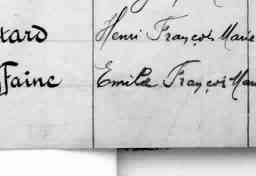 tard Henri François Marie
Faine Emile François Mari